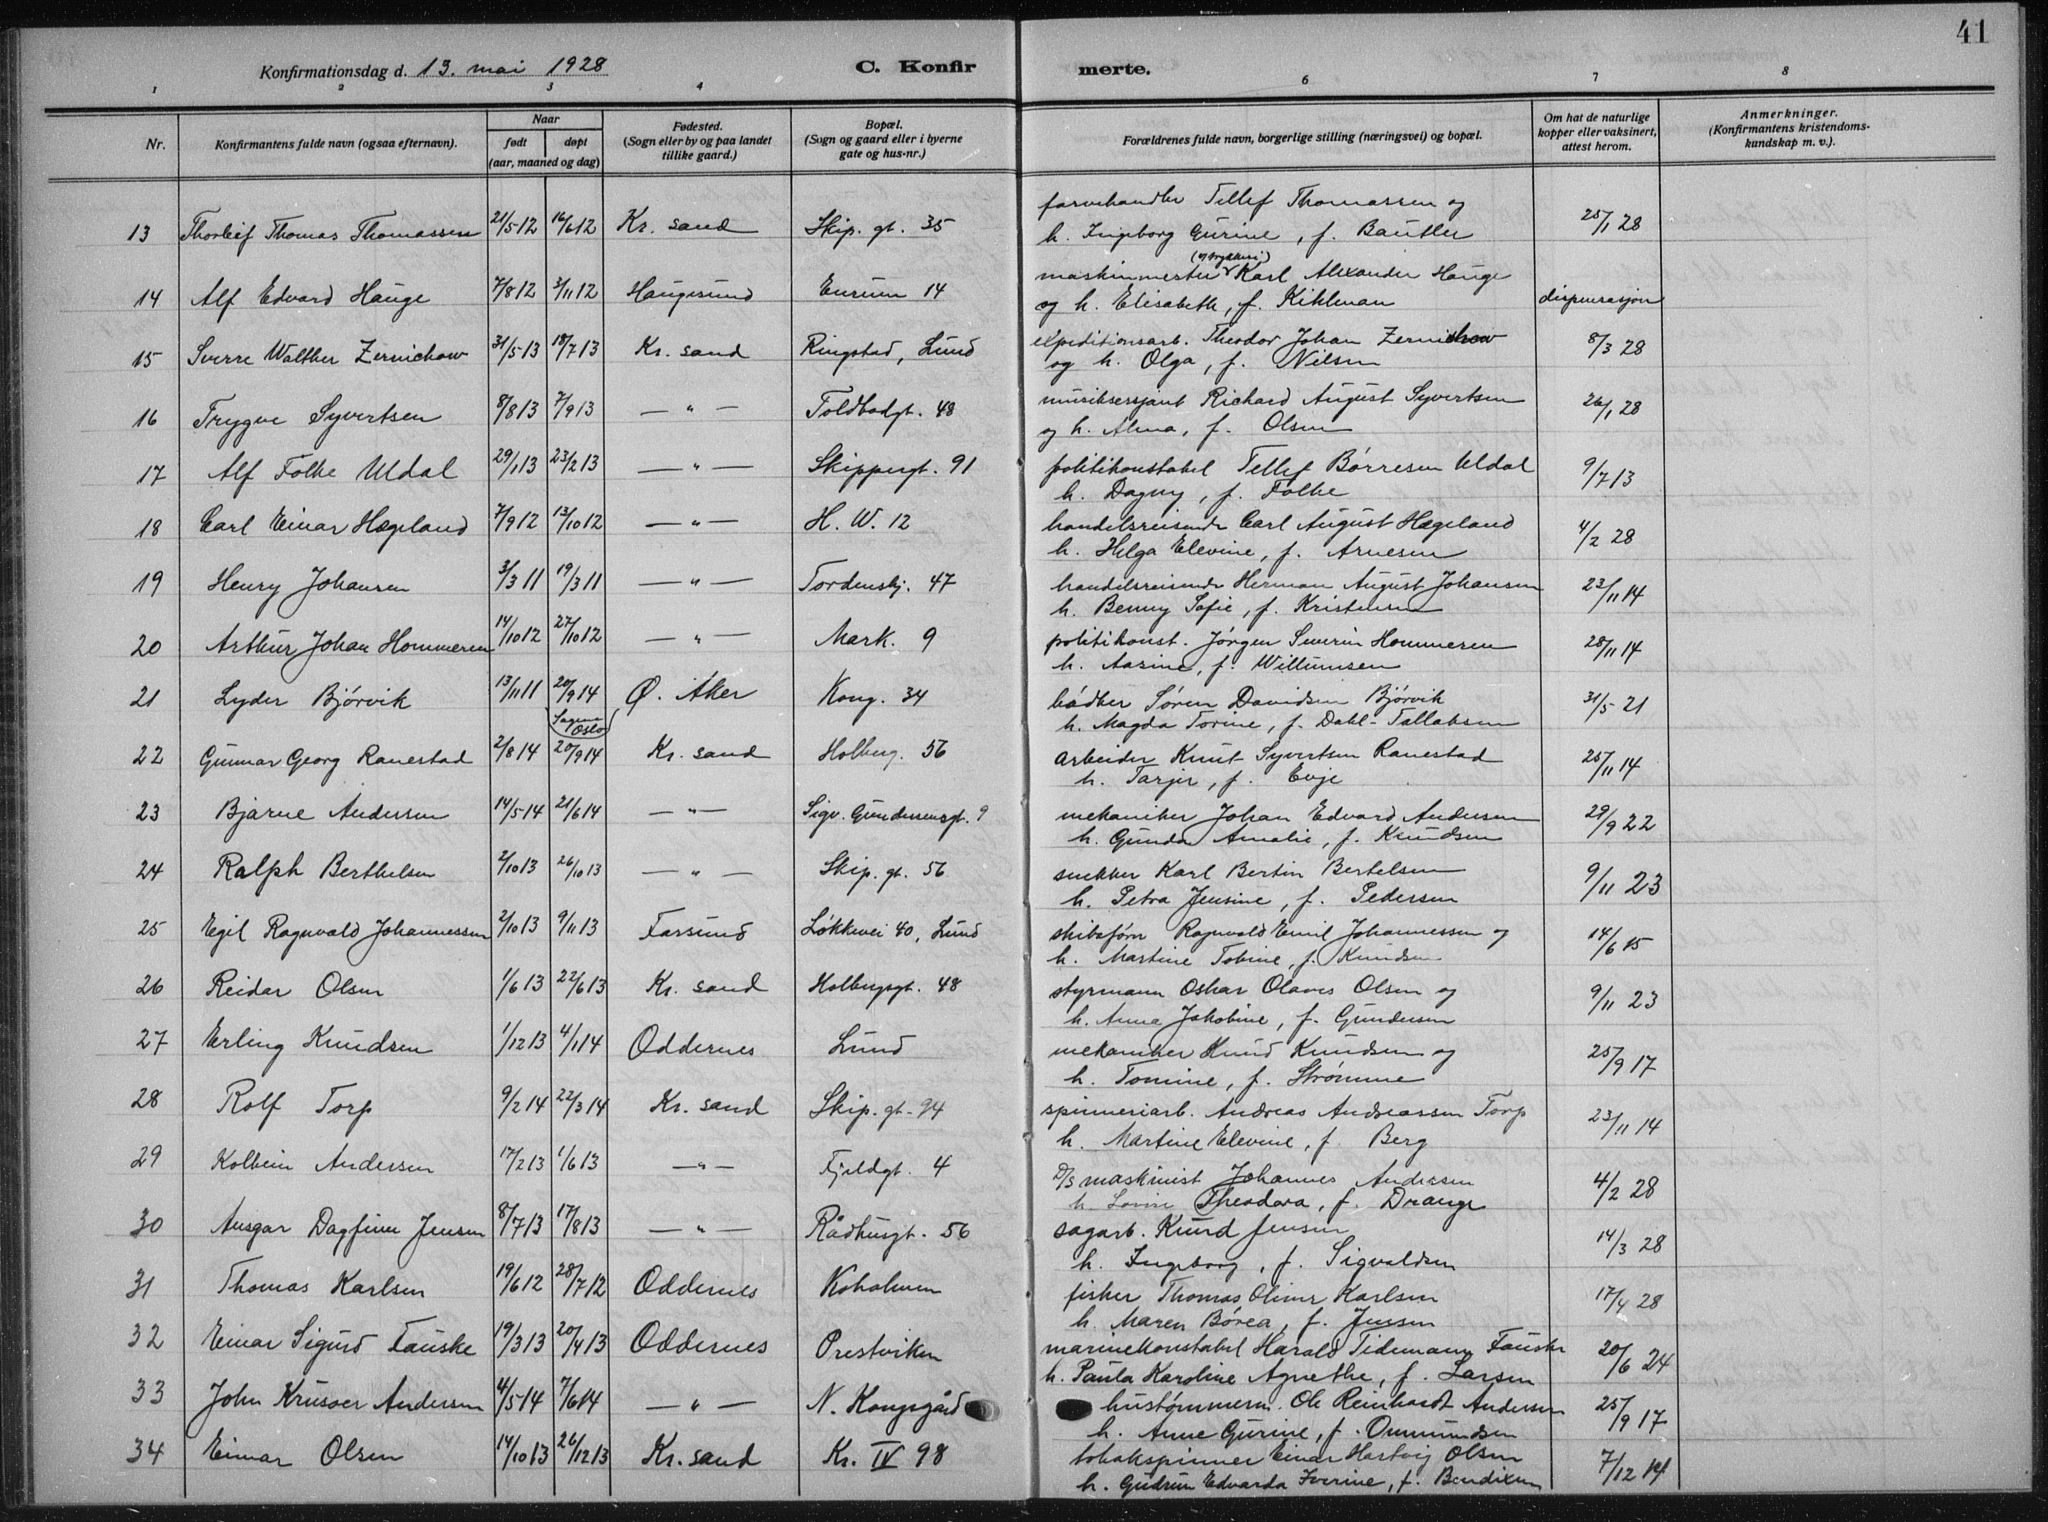 41
Konfirmationsdag d. 13. mai 1928 C. Konfir merte.
1 2 3 4 5 6 7 8
Nr. Konfirmantens fulde navn (ogsaa efternavn). Naar født døpt (aar, maaned og dag) Fødested. (Sogn eller by og paa landet tillike gaard.) Bopæl. (Sogn og gaard eller i byerne gate og hus-nr.) Forældrenes fulde navn, borgerlige stilling (næringsvei) og bopæl. Om hat de naturlige kopper eller vaksinert, attest herom. Anmerkninger. (Konfirmantens kristendoms-kundskap m. v.).
13 Thorleif Thomas Thomassen 21/5 12 16/6 12 Kr. sand Skip. gt. 35 farvehandler Tellef Thomassen og 25/1 28
h. Ingeborg Gurine, f. Bautler
14 Alf Edvard Hauge 7/8 12 3/11 12 Haugesund Eurum 14 maskinmester Karl Alexander Hauge dispensasjon
og h. Elisabeth, f. Kihlman
15 Sverre Walther Zernichow 31/5 13 18/7 13 Kr. sand Ringstad, Lund expeditionsarb. Theodor Johan Zernichow 8/3 28
og h. Olga, f. Nilsen
16 Trygve Syvertsen 8/8 13 7/9 13 — " — Toldbodgt. 48 musiksersjant Richard August Syvertsen 26/1 28
og h. Alma, f. Olsen
17 Alf Folke Udal 29/1 13 23/2 13 — " — Skippergt. 91 politikonstabel Tellef Børresen Udal 9/7 13
h. Dagny, f. Folke
18 Carl Einar Hægeland 7/9 12 13/10 12 — " — H. W. 12 handelsreisende Carl August Hægeland 4/2 28
h. Helga Elevine, f. Arnesen
19 Henry Johansen 3/3 11 19/3 11 — " — Tordenskj. 47 handelsreisende Herman August Johansen 23/11 14
h. Benny Sofie, f. Kristensen
20 Arthur Johan Hommeren 14/10 12 27/10 12 — " — Mark. 9 politikonst. Jörgen Severin Hommeren 28/11 14
h. Aasine, f. Willumsen
21 Lyder Bjørvik 13/11 11 20/9 14 Ø. Aker Kong. 34 bødker Søren Davidsen Bjørvik 31/5 21
Sagene Oslo h. Magda Torine, f. Dahl-Tallaksen
22 Gunnar Georg Ranestad 2/8 14 20/9 14 Kr. sand Holberg. 56 arbeider Knut Syvertsen Ranestad 25/11 14
h. Tarjer, f. Evje
23 Bjarne Andersen 14/5 14 21/6 14 — " — Sigv. Gundersensgt. 9 mekaniker Johan Edvard Andersen 29/9 22
h. Gunda Amalie, f. Knudsen
24 Ralph Berthelsen 2/10 13 26/10 13 — " — Skip. gt. 56 snekker Karl Bertin Bertelsen 9/11 23
h. Petra Jensine, f. Pedersen
25 Egil Ragnvald Johannessen 2/10 13 9/11 13 Farsund Løkkevei 40, Lund skibsførn Ragnvald Emil Johannessen og 14/6 15
h. Martine Tobine, f. Knudsen
26 Reidar Olsen 1/6 13 22/6 13 Kr. sand Holbergsgt. 48 styrmann Oskar Olaves Olsen og 9/11 23
h. Anna Jakobine, f. Gundersen
27 Erling Knudsen 1/12 13 4/1 14 Oddernes Lund mekaniker Knud Knudsen og 25/9 17
h. Tomine, f. Strømme
28 Rolf Torp 9/2 14 22/3 14 Kr. sand Skip. gt. 94 spinneriarb. Andreas Andreassen Torp 23/11 14
h. Martine Elevine, f. Berg
29 Kolbein Andersen 17/2 13 1/6 13 — " — Fjeldgt. 4 D/S maskinist Johannes Andersen 4/2 28
h. Lovise Theodora, f. Drange
30 Ansgar Dagfinn Jensen 8/7 13 17/8 13 — " — Rådhusgt. 56 sagarb. Knud Jensen 14/3 28
h. Ingeborg, f. Sigvaldsen
31 Thomas Karlsen 19/6 12 28/7 12 Oddernes Koholmen fisker Thomas Oliver Karlsen 17/4 28
h. Maren Børea, f. Jensen
32 Einar Sigurd Fauske 19/3 13 20/4 13 Oddernes Prestviken marinekonstabel Harald Tidemann Fauske 20/6 24
h. Paula Karoline Agnethe, f. Larsen
33 John Krusoer Andersen 4/5 14 7/6 14 — " — N. Kongsgård hustømmerm. Ole Reinhardt Andersen 25/9 17
h. Anne Gurine, f. Ommundsen
34 Einar Olsen 14/10 13 26/12 13 Kr. sand Kr. IV 98 tobakspinner Einar Hartvig Olsen 7/12 14
h. Gudrun Edvarda Iverine, f. Bendixen